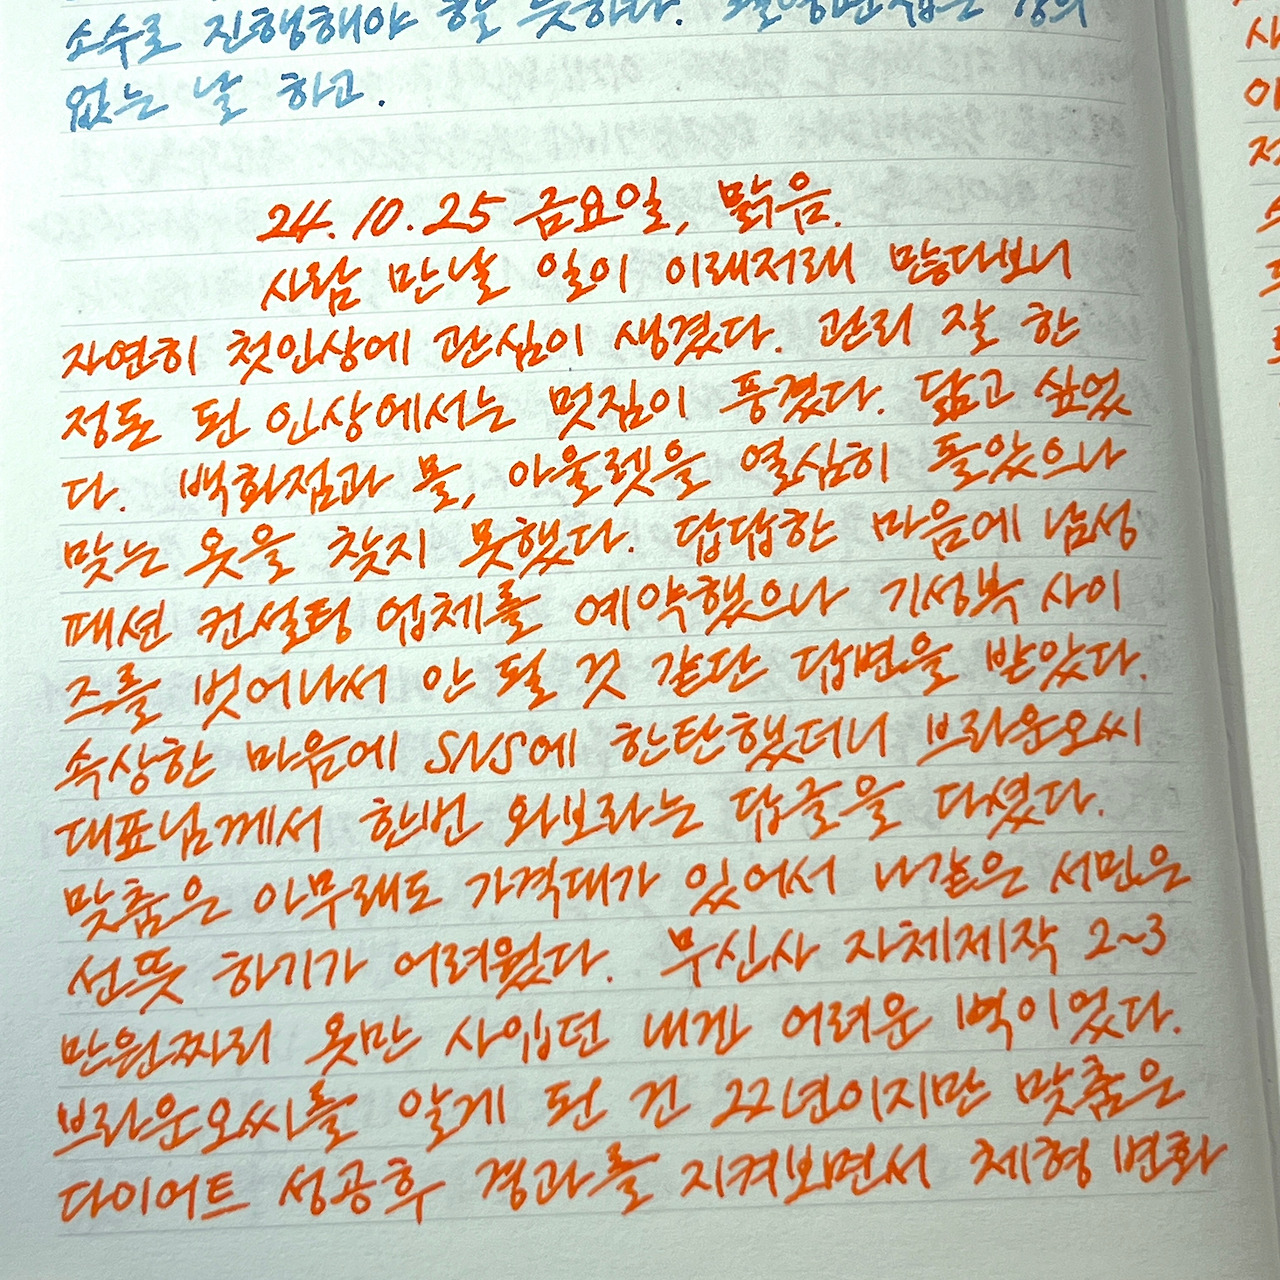 소수로 진행해야 할 듯하다.
없는 날 하고.
24. 10. 25 금요일, 맑음.
사람 만날 일이 이래저래 많다보니
자연히 첫인상에 관심이 생겼다. 관리 잘 한
정돈 된 인상에서는 멋짐이 풍겼다. 닮고 싶었
다. 백화점과 몰, 아울렛을 열심히 돌았으나
맞는 옷을 찾지 못했다. 답답한 마음에 남성
패션 컨설팅 업체를 예약했으나 기성복 사이
즈를 벗어나서 안 될 것 같단 답변을 받았다.
속상한 마음에 SNS에 한탄했더니 브라운오씨
대표님께서 한번 와보라는 답글을 다셨다.
맞춤은 아무래도 가격대가 있어서 나같은 서민은
선뜻 하기가 어려웠다. 무신사 자체제작 2~3
만원짜리 옷만 사입던 내겐 어려운 벽이었다.
브라운오씨를 알게 된 건 22년이지만 맞춤은
다이어트 성공후 경과를 지켜보면서 체형 변화
사
이